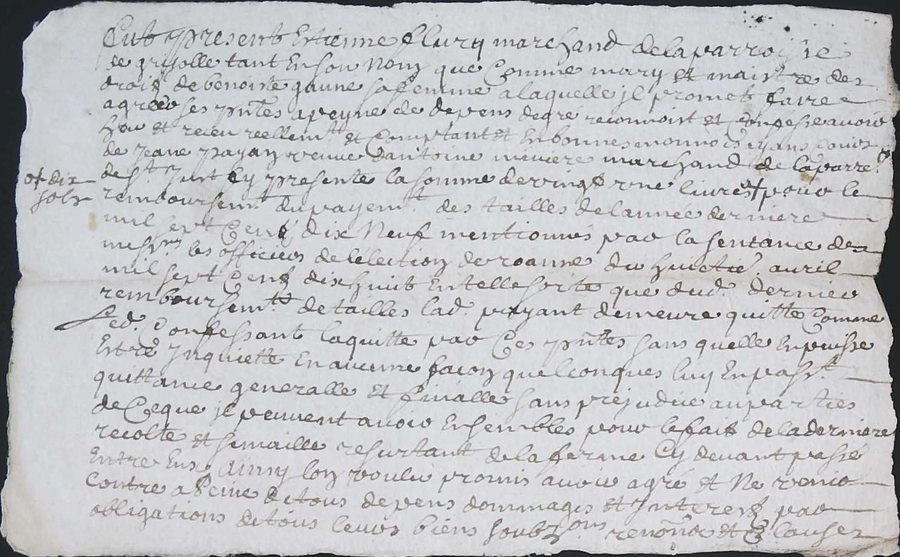 fut present Etienne fleury marchand de la parroisse
de grisolle tant En son Nom que Comme mary et maistre des
drois de benoiste gaune sa femme a laquelle jl promet faire
agreer ses pntes a peyne de depens degré reconnoit et Confesse avoir
heu et receu reellemt et Comptant et En bonnes monnois ayans cours
de Jeane payan veuve d'antoine miviere marchand de la parr.
de st Just Cy presente la somme de vingt une livres + pour le
+ dix
sols
remboursemt du payemt des tailles de l'année derniere
mil sept Cent dix Neuf mentionnés par la sentance de
mesrs les officiers de l'election de roanne du huictie avril
mil sept Cent dix huit En telle sorte que dud. dernier
remboursemt de tailles lad. payant demeure quitte Comme
led. Confessant la quitte par Ces pntes sans quelle En puisse
Estre Inquiette En aucune façon quelconques luy En passt
quittance generalle et finalle sans prejudice aux parties
de Ceque jl peuvent avoir Ensembles pour le fait de la derniere
recolte et semaille resultant de la ferme Cy devant passé
Entre Eux Ainsy lon voulu promis avoir agré et Ne venir
Contre a Peine de tous depens dommages et Interest par
obligations de tous leurs biens soubzons renons et Clauses